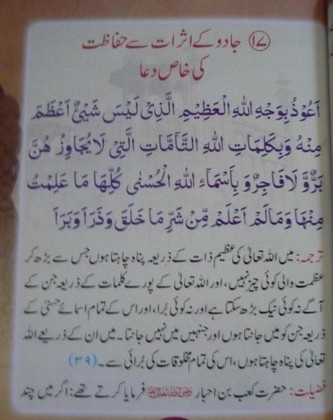 ۱۷ جادو کے اثرات سے حفاظت
کی خاص دعا
اَعُوْذُ بِوَجْهِ اللهِ الْعَظِيْمِ الَّذِىْ لَيْسَ شَيْئٌ اَعْظَمَ
مِنْهُ وَبِكَلِمَاتِ اللهِ التَّامَّاتِ الَّتِىْ لَا يُجَاوِزُ هُنَّ
بَرٌّ وَّلَا فَاجِرٌ وَ بِاَسْمَاءِ اللهِ الْحُسْنٰى كُلِّهَا مَا عَلِمْتُ
مِنْهَا وَمَا لَمْ اَعْلَمْ مِّنْ شَرِّ مَا خَلَقَ وَذَرَاَ وَبَرَاَ
ترجمہ: میں اللہ تعالیٰ کی عظیم ذات کے ذریعہ پناہ چاہتا ہوں جس سے بڑھ کر
عظمت والی کوئی چیز نہیں، اور اللہ تعالیٰ کے پورے کلمات کے ذریعہ جن کے
آگے نہ کوئی نیک بڑھ سکتا ہے اور نہ کوئی برا، اور اس کے تمام اسمائے حسنیٰ کے
ذریعہ جن کو میں جانتا ہوں اور جنہیں میں نہیں جانتا۔ میں ان کے ذریعے اللہ
تعالیٰ کی پناہ چاہتا ہوں، اس کی تمام مخلوقات کی بُرائی سے۔ (۳۹)
فضیلت: حضرت کعب بن احبار رضی اللہ عنہ فرمایا کرتے تھے: اگر میں چند